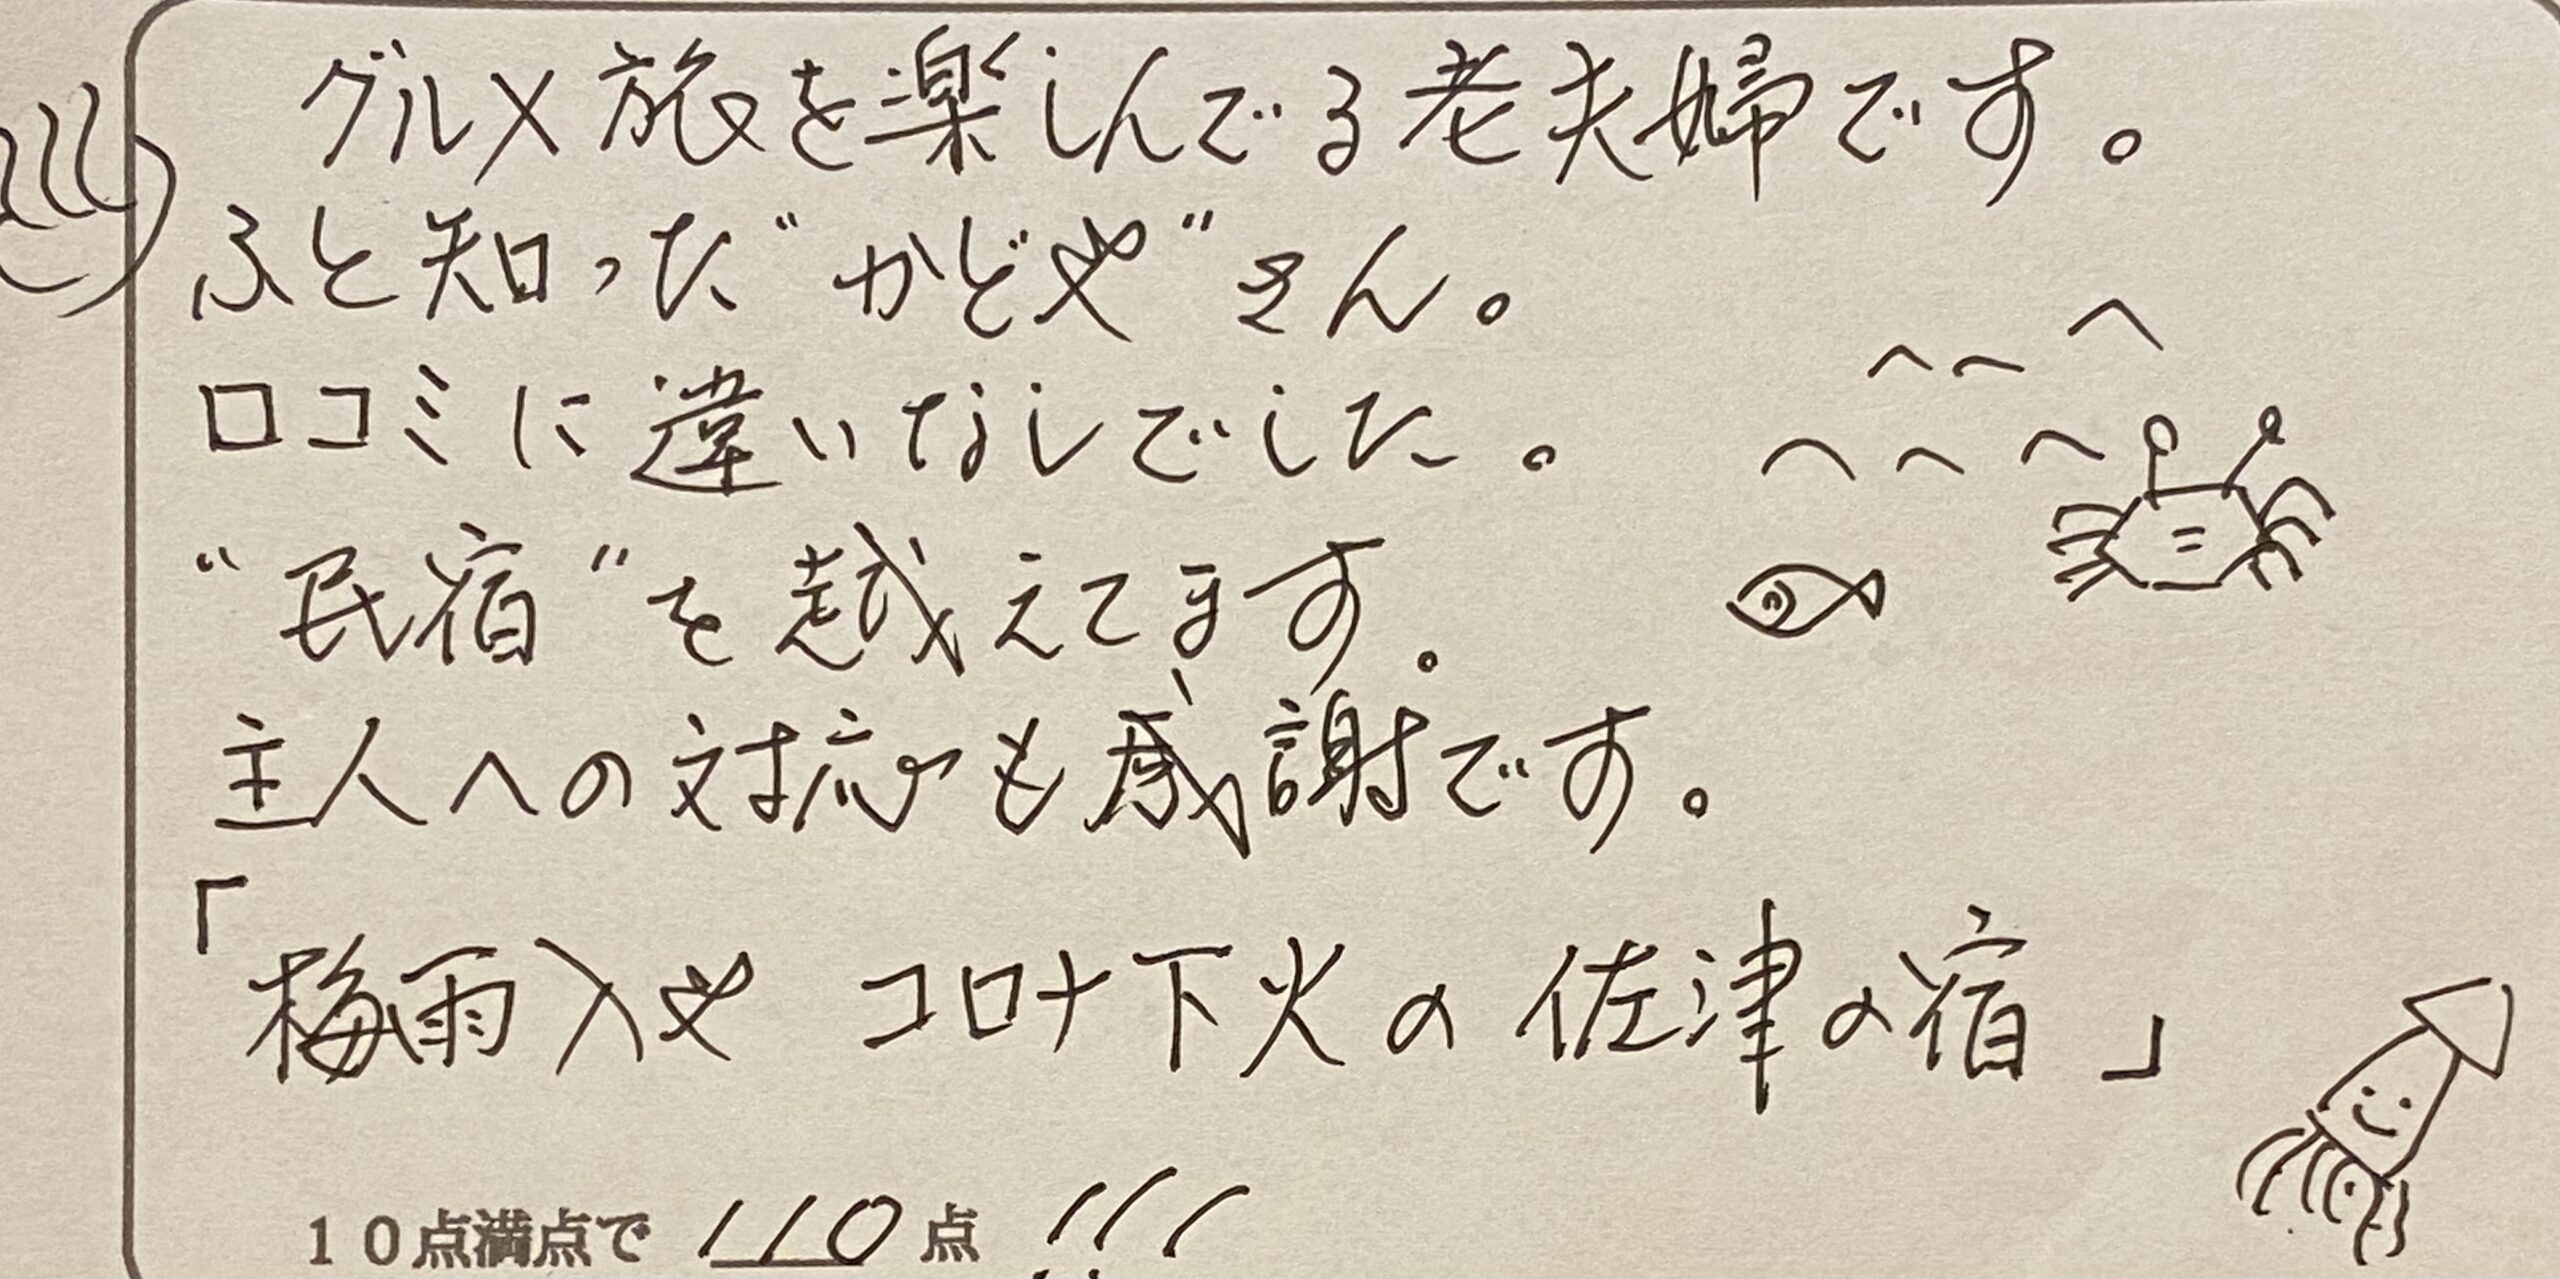 グルメ旅を楽しんでる老夫婦です。
ふと知った“かどや”さん。
口コミに違いなしでした。
“民宿”を越えてます。
主人への対応も感謝です。
「梅雨入や コロナ下火の 佐津の宿」
10点満点で 110 点 !!!